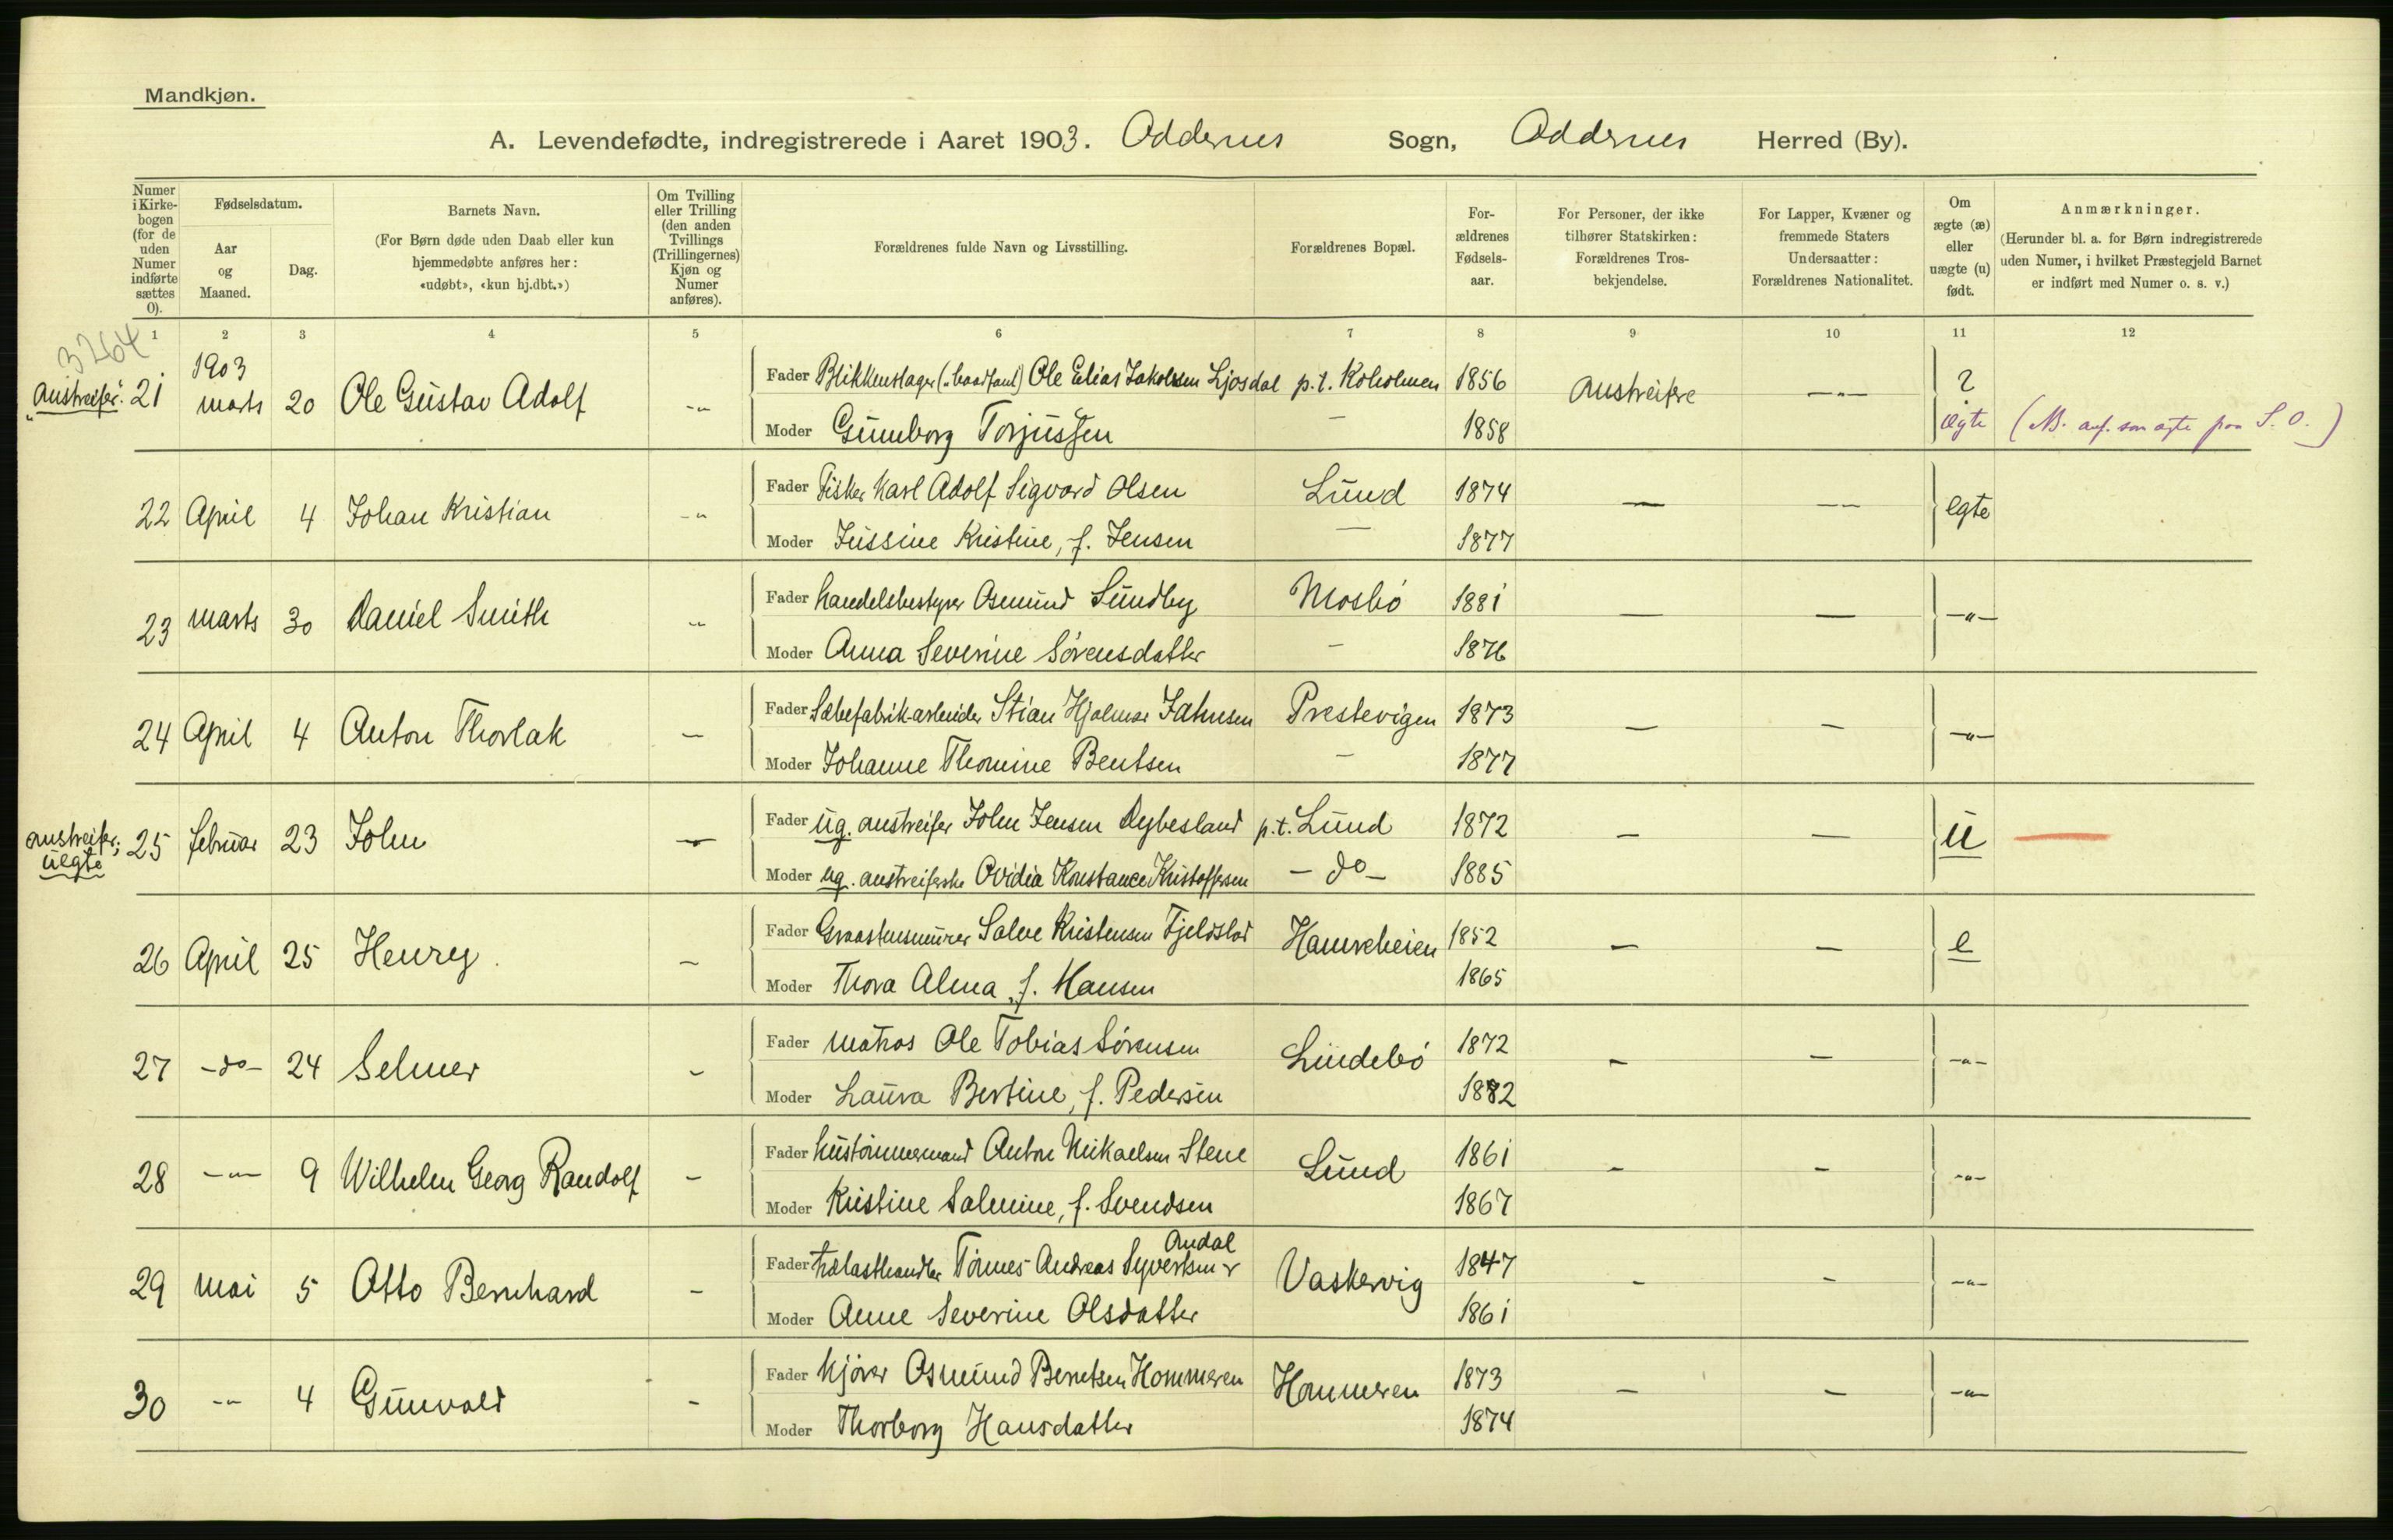 Mandkjøn.
A. Levendefødte, indregistrerede i Aaret 1903. Oddernes Sogn, Oddernes Herred (By).
Numer i Kirkebogen (for de uden Numer indførte sættes 0).
Fødselsdatum.
Aar og Maaned.
Dag.
Barnets Navn.
(For Børn døde uden Daab eller kun hjemmedøbte anføres her: «udøbt», «kun hj.dbt.»)
Om Tvilling eller Trilling (den anden Tvillings (Trillingernes) Kjøn og Numer anføres).
Forældrenes fulde Navn og Livsstilling.
Forældrenes Bopæl.
Forældrenes Fødselsaar.
For Personer, der ikke tilhører Statskirken: Forældrenes Trosbekjendelse.
For Lapper, Kvæner og fremmede Staters Undersaatter: Forældrenes Nationalitet.
Om ægte (æ) eller uægte (u) født.
Anmærkninger.
(Herunder bl. a. for Børn indregistrerede uden Numer, i hvilket Præstegjeld Barnet er indført med Numer o. s. v.)
1 2 3 4 5 6 7 8 9 10 11 12
3264
1903
"austreifer". 21 marts 20 Ole Gustav Adolf -"- Fader Blikkenslager ("baadfant) Ole Elias Jakobsen Ljosdal p.t. Koholmen 1856 Austreifere -"- ?
Moder Gunborg Torjussen - 1858 Ægte (NB. anf. som ægte paa S. O.)
22 April 4 Johan Kristian -" Fader Fisker Karl Adolf Sigvard Olsen Lund 1874 — -- egte
Moder Jussine Kristine, f. Jensen - 1877
23 marts 30 Daniel Smith " Fader handelsbestyrer Osmund Sundby Mosbó 1881 — — -"-
Moder Anna Severine Sörensdatter - 1876
24 April 4 Anton Thorlak - Fader Sæbefabrik-arbeider Stian Hjalmar Jahnsen Prestevigen 1873 - - -"-
Moder Johanne Thomine Bentsen - 1877
austreifer; uegte 25 februar 23 John - Fader ug. austreifer John Jensen Dybesland p.t. Lund 1872 - - U
Moder ug. austreiferske Ovidia Konstance Kristoffersen - do - 1885
26 April 25 Henry. - Fader Graastensmurer Salve Kristensen Fjeldslad Hamreheien 1852 - - e
Moder Thora Alma, f. Hansen 1865
27 -do- 24 Selmer - Fader matros Ole Tobias Sörensen Lindebó 1872 - - -"-
Moder Laura Bertine, f. Pedersen 1882
28 -"- 9 Wilhelm Georg Randolf - Fader hustömmermand Anton Mikaelsen Stene Lund 1861 - - -"-
Moder Kristine Salmine, f. Svendsen 1867
Andal
29 mai 5 Otto Bernhard - Fader trælasthandler Tönnes Andreas Syvertsen Vaskervig 1847 - - -"-
Moder Anne Severine Olsdatter 1861
30 -"- 4 Gunvald - Fader Kjörer Osmund Berntsen Hommeren Hommeren 1873 - - -"-
Moder Thorborg Hansdatter 1874